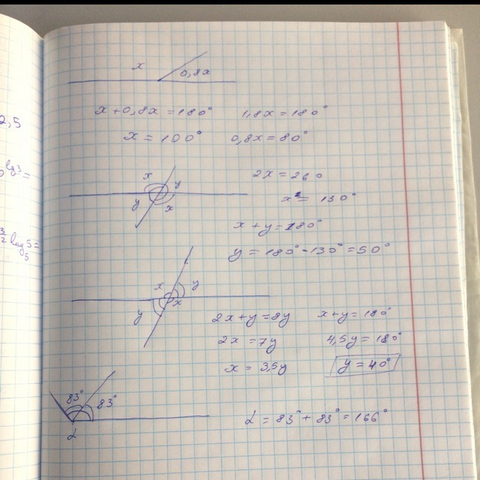 x 0,8x
x+0,8x=180° 1,8x=180°
x=100° 0,8x=80°
2,5
lg3=
x y
y x
2x=260
x=130°
x+y=180°
y=180°-130°=50°
3/2 log₅5=
x y
y x
2x+y=8y x+y=180°
2x=7y 4,5y=180°
x=3,5y y=40°
83° 83°
α
α=83°+83°=166°